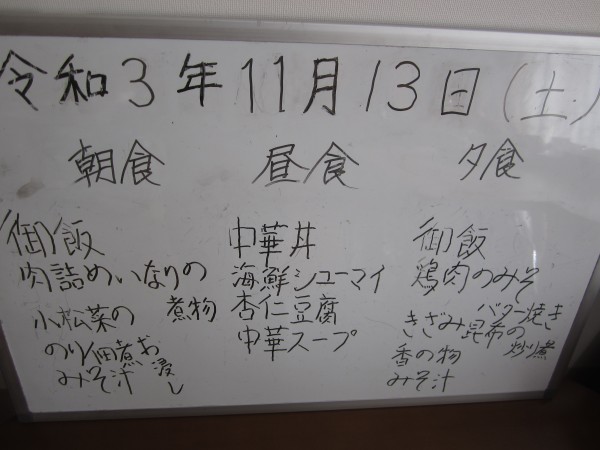 令和3年11月13日(土)
朝食
御飯
肉詰めいなりの
煮物
小松菜の
お浸し
のり佃煮
みそ汁
昼食
中華丼
海鮮シューマイ
杏仁豆腐
中華スープ
夕食
御飯
鶏肉のみそ
バター焼き
きざみ昆布の
炒煮
香の物
みそ汁